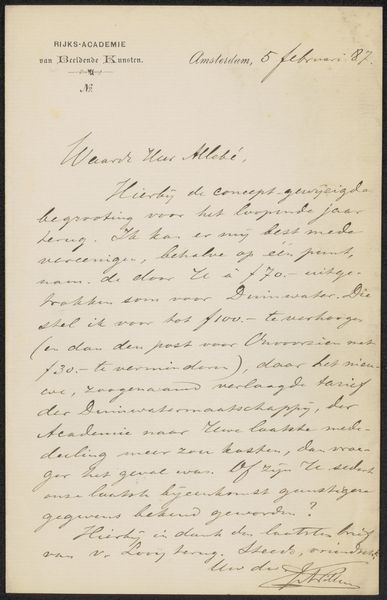 RIJKS-ACADEMIE
van Beeldende Kunsten.
No.
Amsterdam, 5 februari 87.
Waarde Heer Allebé,
Hierbij de concept-gewijzigde
begrooting voor het loopende jaar
terug. Ik kan er mij best mede
vereenigen, behalve op één punt,
nam. de door U à ƒ70.- uitge-
trokken som voor Duinwater. Die
stel ik voor tot ƒ100.- te verhoogen
(en dan den post voor Onvoorzien met
ƒ30.- te verminderen), daar het nieu-
we, zoogenaamd verlaagde tarief
der Duinwatermaatschappij, der
Academie naar Uwe laatste mede-
deeling meer zou kosten, dan vroe-
ger het geval was. Of zijn U sedert
onze laatste bijeenkomst gunstiger
gegevens bekend geworden?
Hierbij in dank den laatsten brief
van v. Looij terug. Steeds, vriendsch.
Uw dw